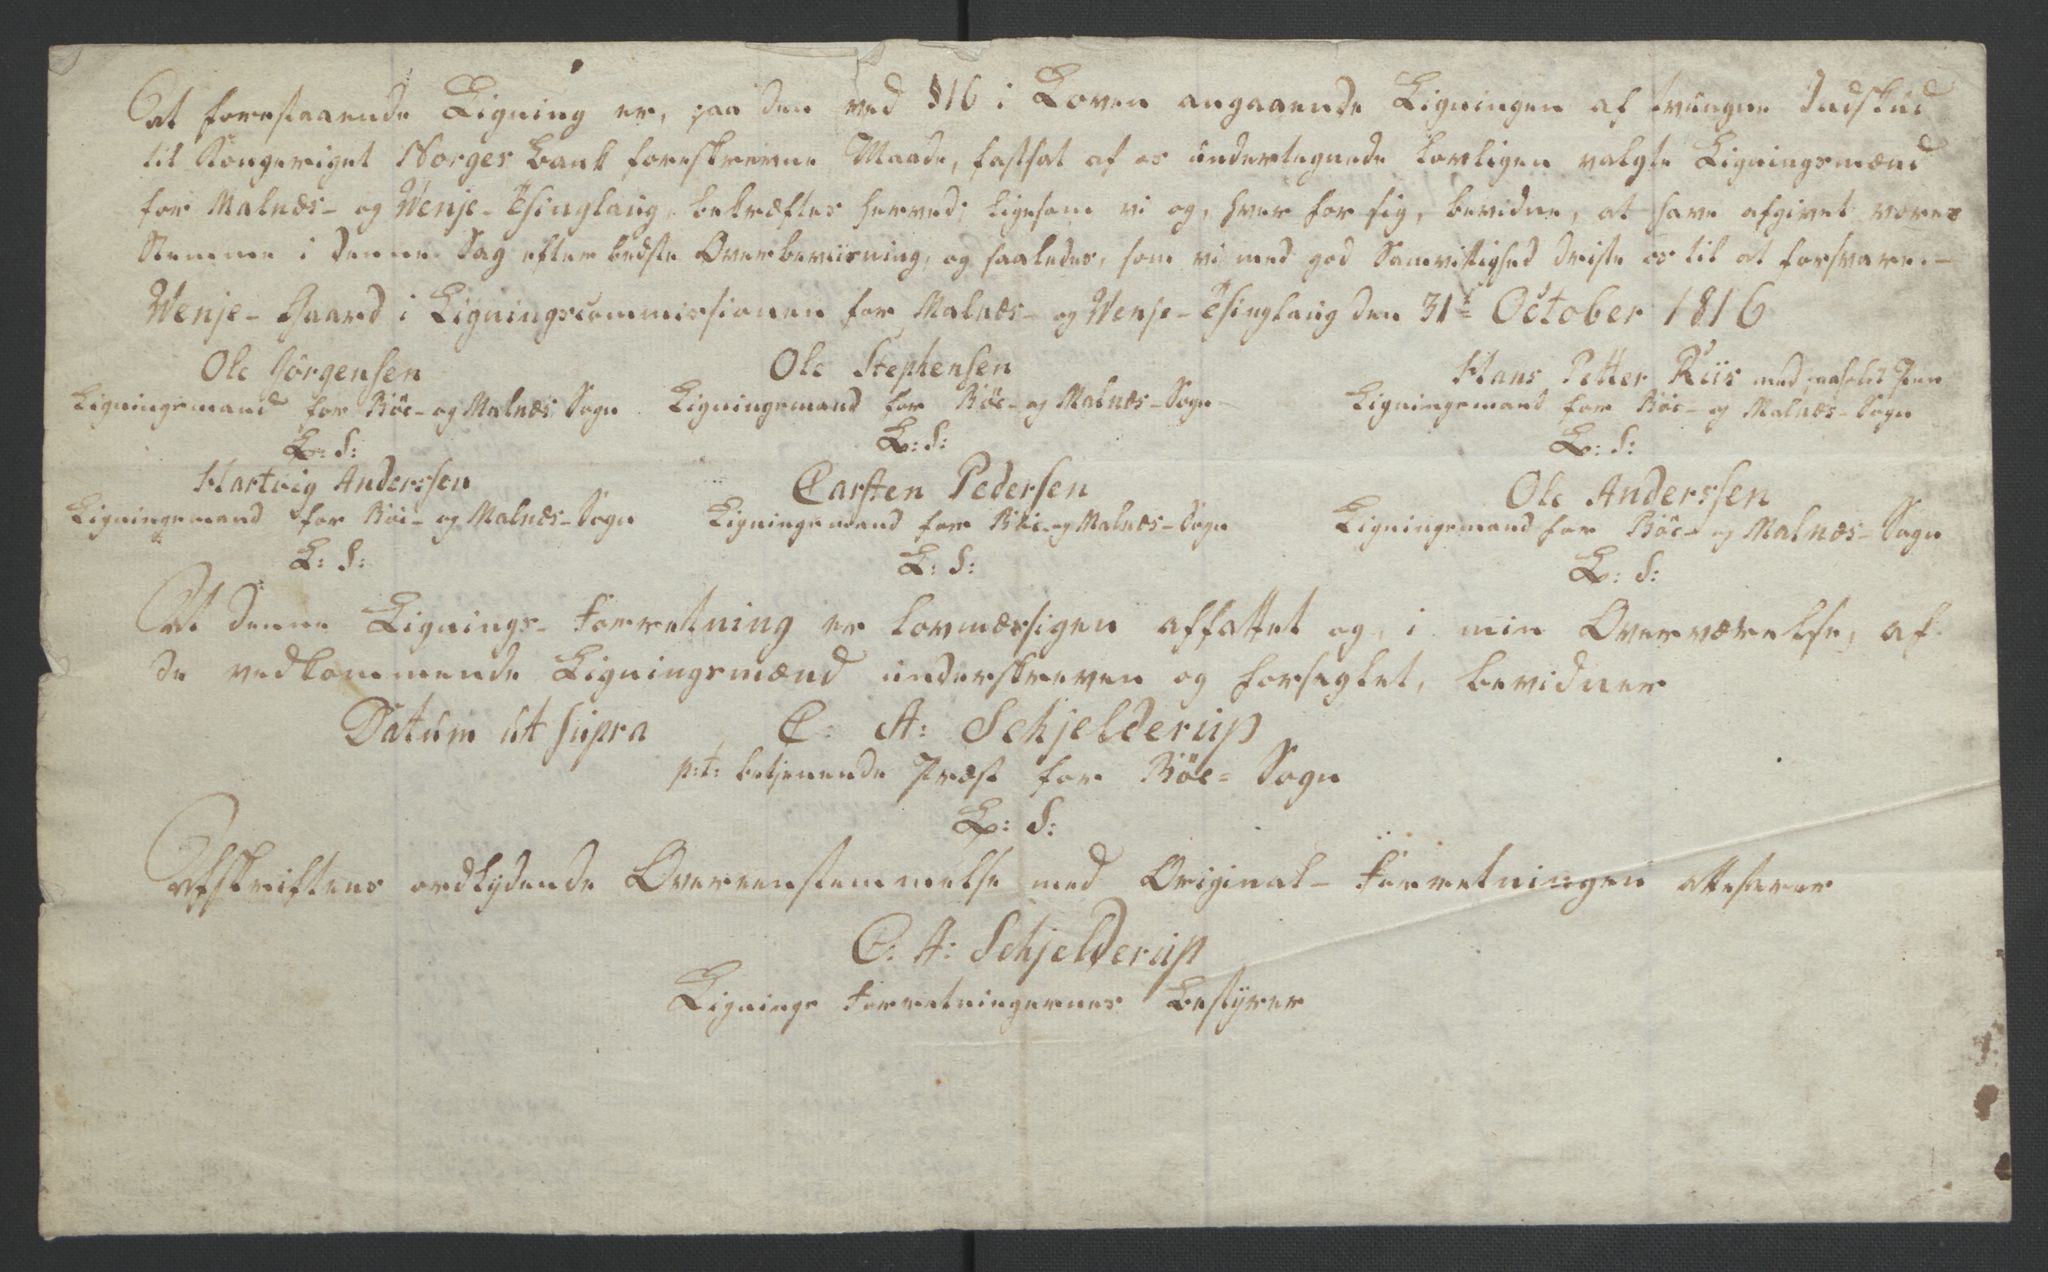 At forestaaende Ligning er, paa den ved §16 i Loven angaaende Ligningen af tvungne Indskud
til Kongeriget Norges Bank foreskrevne Maade, fastsat af os undertegnede lovligen valgte Ligningsmænd
for Malnæs- og Wenje- Thinglaug, bekræftes herved; ligesom vi og, hver for sig, bevidne, at have afgivet vores
Stemme i denne Sag efter bedste Overbeviisning, og saaledes, som vi med god Samvittighed driste os til at forsvare.-
Wenje- Gaard i Ligningscommissionen for Malnæs- og Wenje- Thinglaug den 31te October 1816
Ole Jörgensen Ole Stephensen Hans Petter Riis med paaholdt Pen
Ligningsmand for Böe- og Malnæs Sogn Ligningsmand for Böe- og Malnæs- Sogn Ligningsmand for Böe- og Malnæs- Sogn
L: S: L: S: L: S:
Hartvig Anderssen Carsten Pedersen Ole Anderssen
Ligningsmand for Böe- og Malnæs- Sogn Ligningsmand for Böe- og Malnæs- Sogn Ligningsmand for Böe- og Malnæs- Sogn
L: S: L: S: L: S:
At denne Lignings- Forretning er lovmæssigen affattet og, i min Overværelse, af
de vedkommende Ligningsmænd underskreven og forseglet, bevidner
Datum ut supra C: A: Schjelderup
p:t: betjenende Præst for Böe- Sogn
L: S:
Afskriftens ordlydende Overeenstemmelse med Original- Forretningen attesterer
C: A: Schjelderup
Lignings Forretningernes Bestyrer